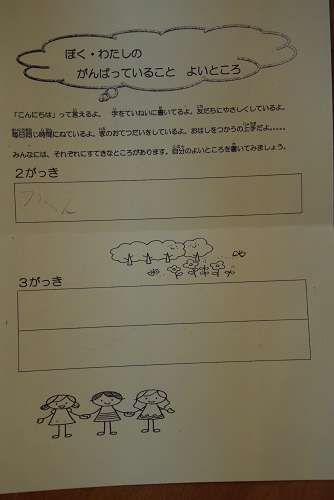 ぼく・わたしの
がんばっていること よいところ
「こんにちは」って言えるよ。 字をていねいに書いてるよ。友だちにやさしくしているよ。
毎日同じ時間にねているよ。家のおてつだいをしているよ。おはしをつかうの上手だよ.....
みんなには、それぞれにすてきなところがあります。自分のよいところを書いてみましょう。
2がっき
3がっき